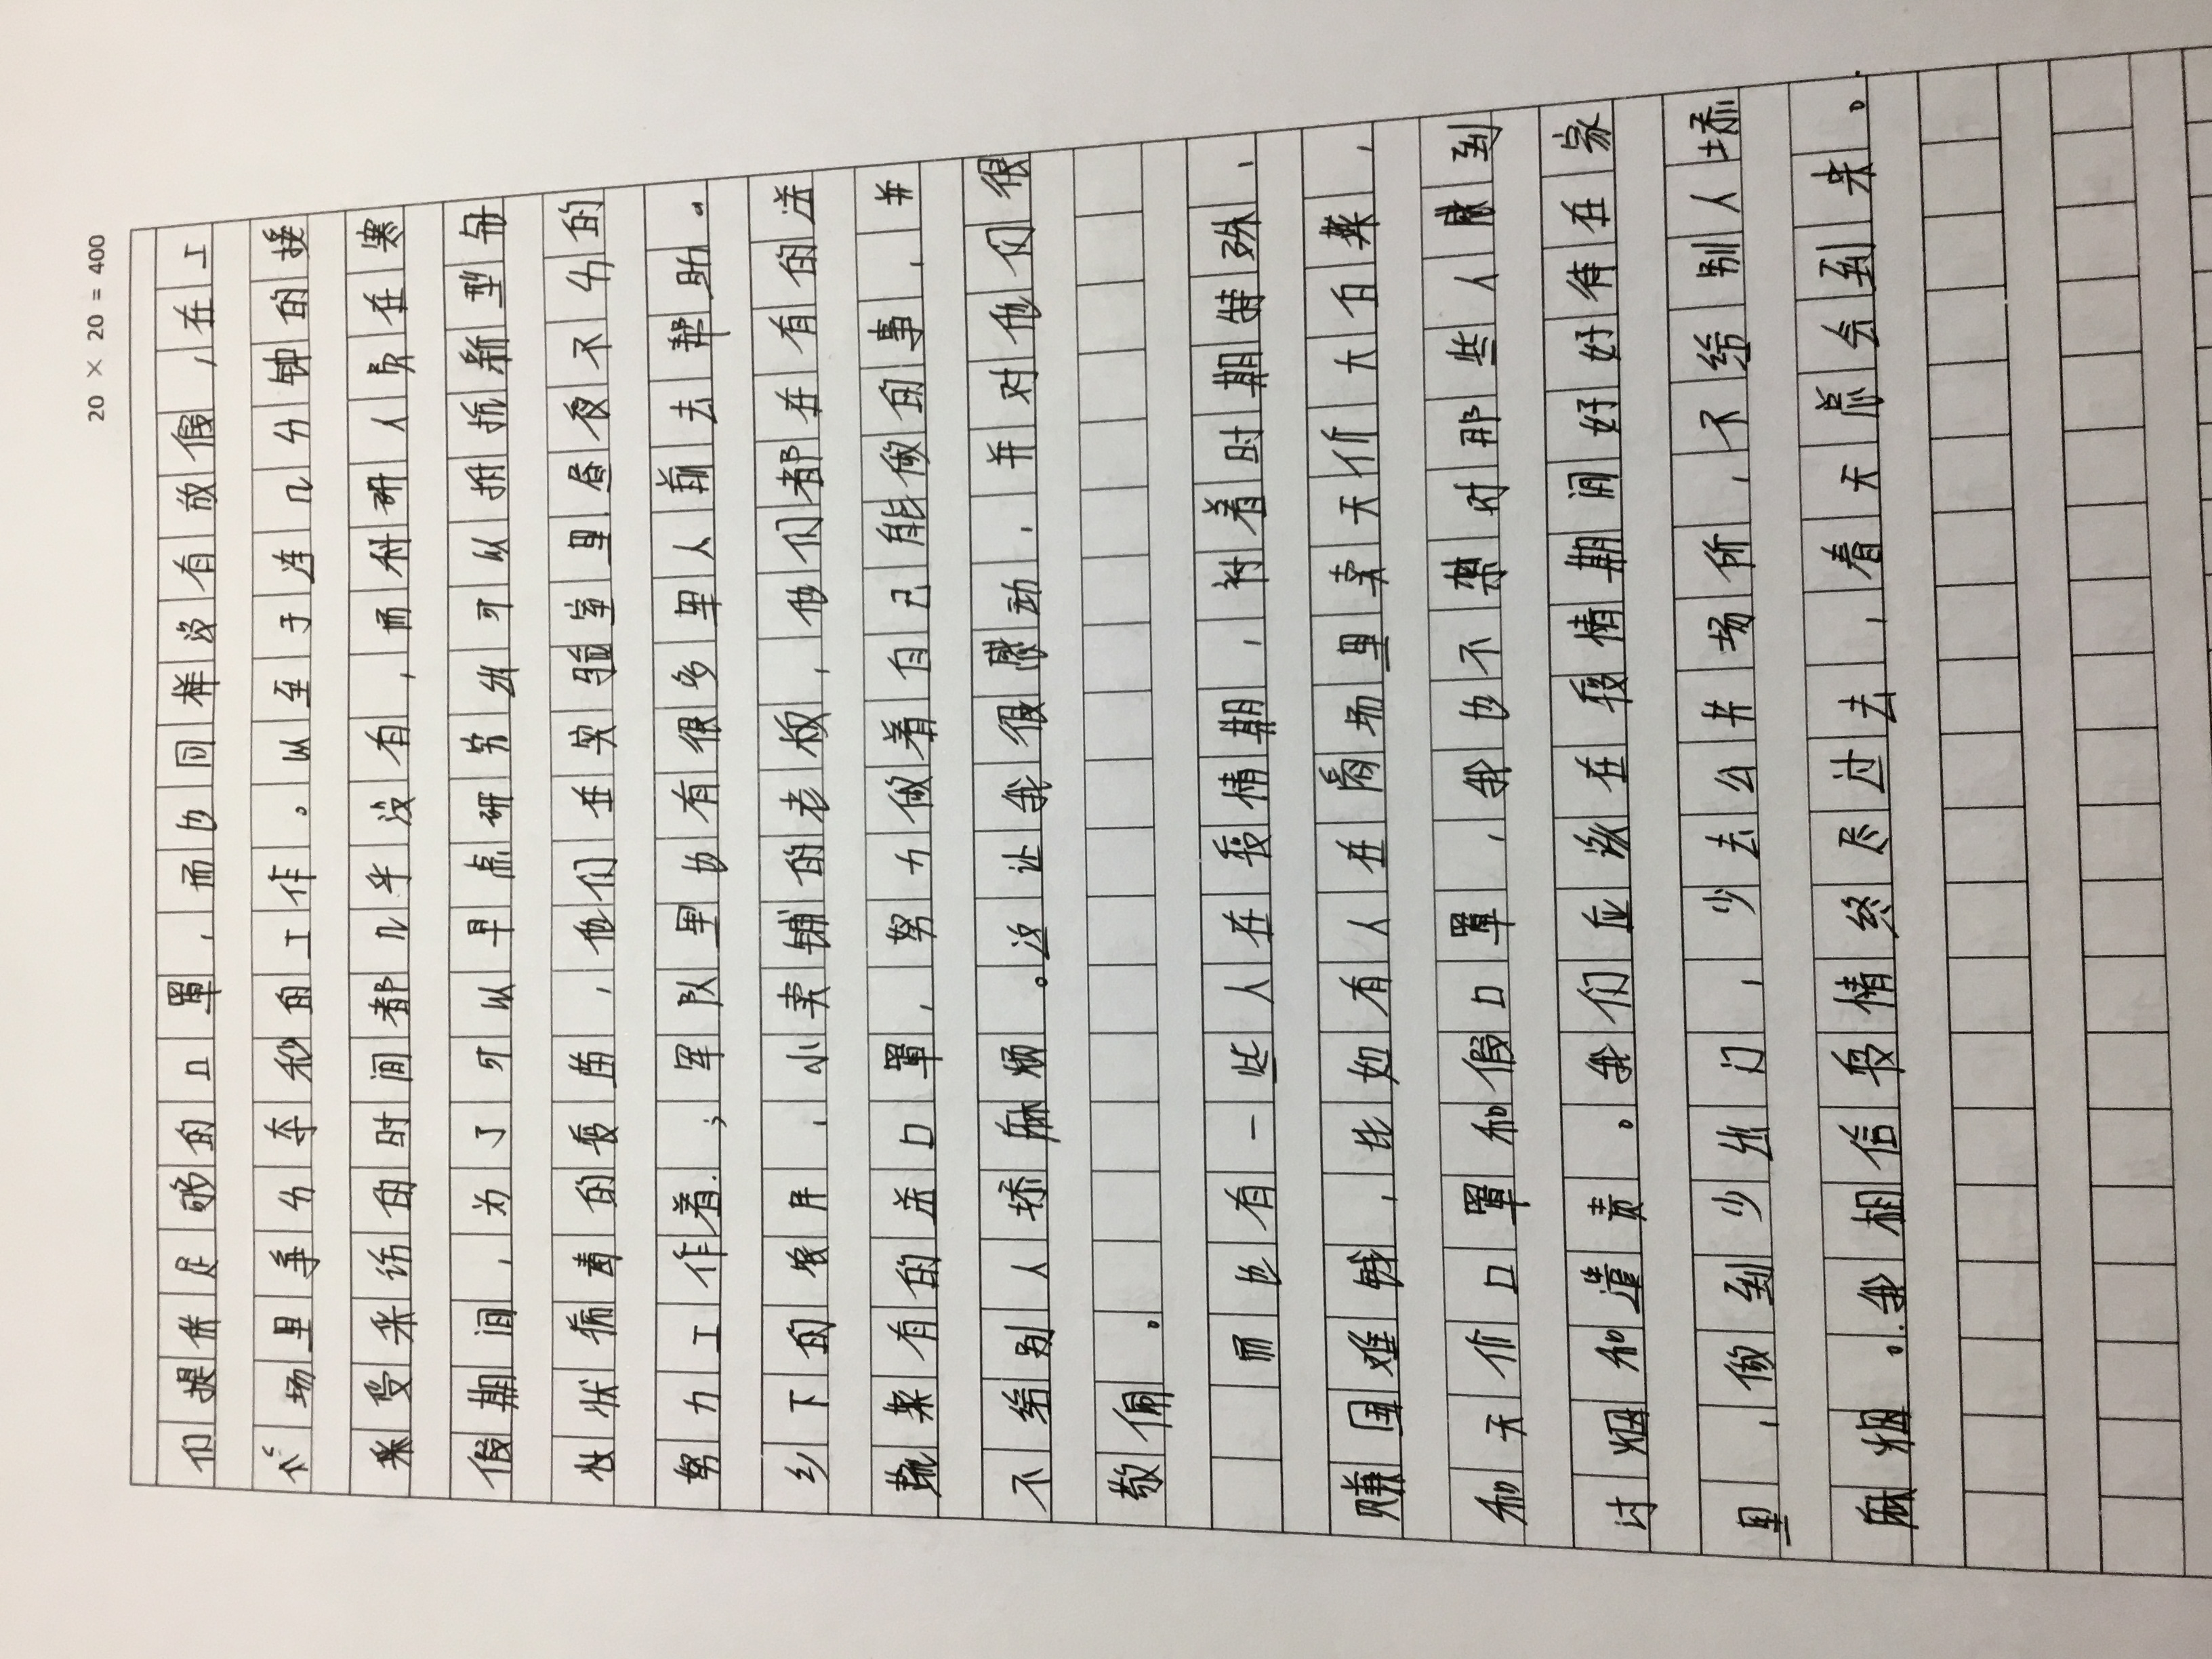 20 × 20 = 400
们提供足够的口罩，而也同样没有放假，在工
场里争分夺秒的工作。以至于连几分钟的接
来受采访的时间都几乎没有，而科研人员在寒
假期间，为了可以早点研究出可以抗新型
状病毒的疫苗，他们在实验室里昼夜不分的
努力工作着；军队里也有很多里人前去帮助。
乡下的农民，小卖铺的老板，他们都在有的送
蔬菜有的送口罩，努力做着自己能做的事，并
不给别人添麻烦。这让我很感动，并对他们很
敬佩。
而也有一些人在疫情期，衬着时期特殊，
赚国难钱，比如有人在商场里卖天价大白菜，
和天价口罩和假口罩，我也不禁对那些人感到
讨烟和谴责。我们应该在疫情期间好好待在家
里，做到少出门，少去公共场所，不给别人添
麻烟。我相信疫情终尽过去，春天总会到来。